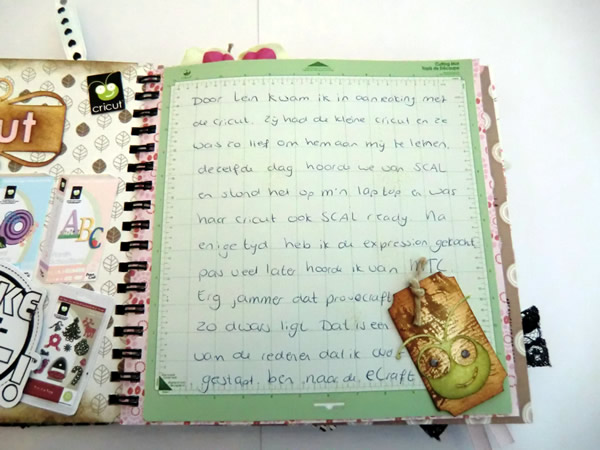 cricut
cut
ABC
KE
Cutting Mat
Tapis de Découpe
Door Lein kwam ik in aanraking met
de cricut. Zij had de kleine cricut en ze
was zo lief om hem aan mij te lenen.
dezelfde dag hoorde we van SCAL
en stond het op m'n laptop en was
haar cricut ook SCAL ready. Na
enige tyd heb ik de expression gekocht
pas veel later hoorde ik van MTC
Erg jammer dat provocraft
zo dwars ligt. Dat is een
van de redenen dat ik over
gestapt ben naar de eCraft